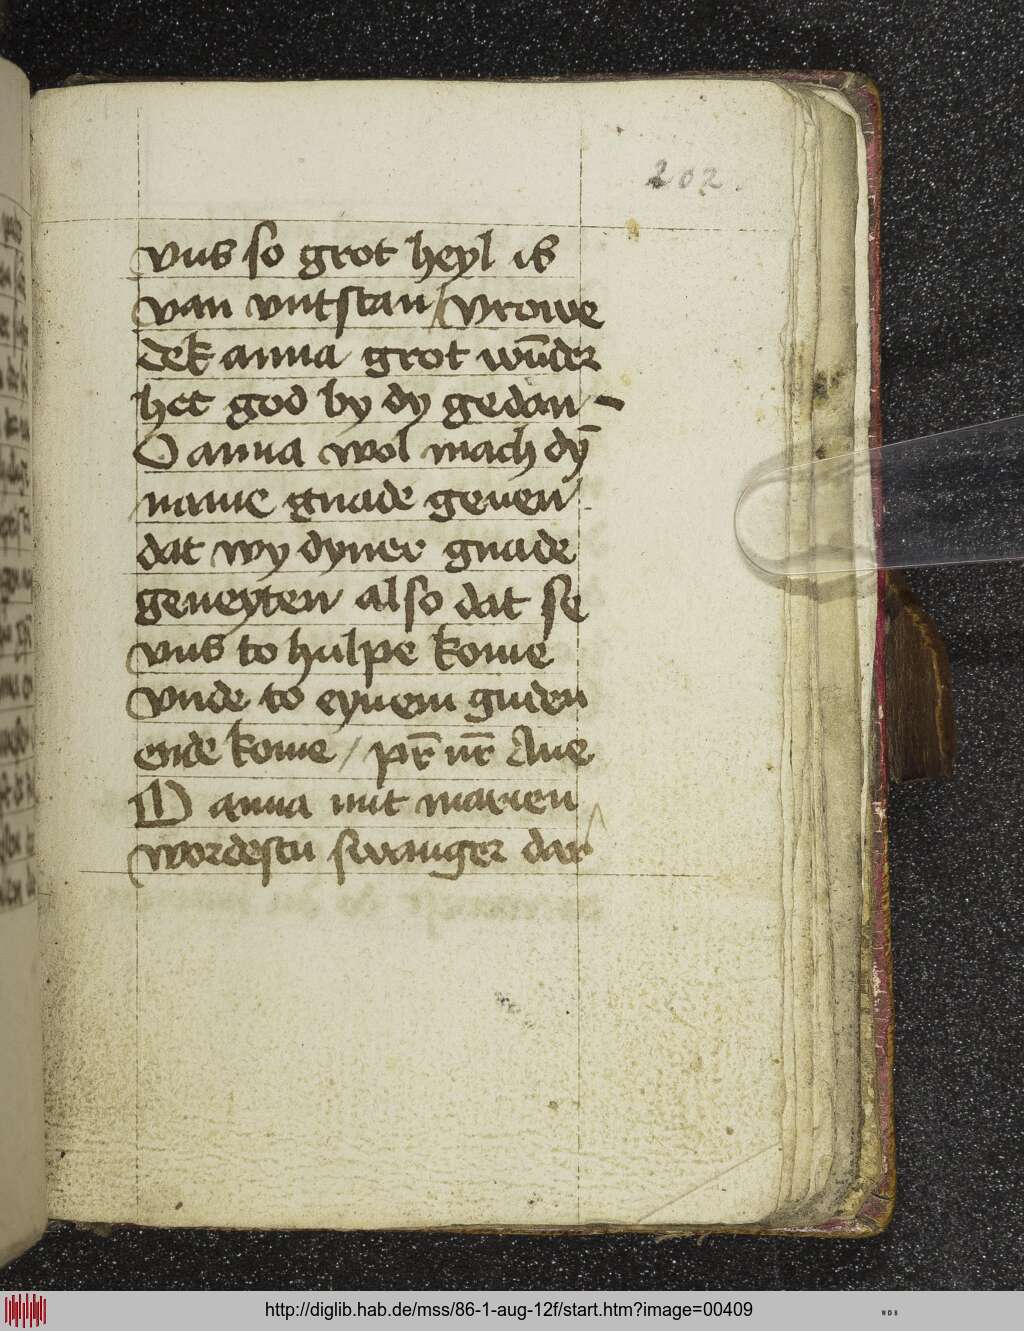 202
vns so grot heyl is
van vntstan / vrowe
dek anna grot wūder
het god by dy gedan -
O anna wol mach dȳ
name gnade geuen
dat wy dyner gnade
geneyten also dat se
vns to hulpe kome
vnde to eynem guden
ende kome / pr̄ nr̄ Aue
O anna mit marien
wordestu swanger dar
http://diglib.hab.de/mss/86-1-aug-12f/start.htm?image=00409